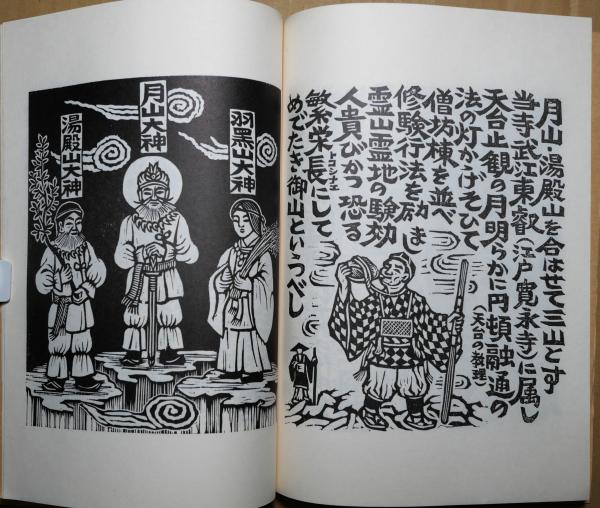 月山・湯殿山を合はせて三山とす
当寺武江東叡(江戸寛永寺)に属し
天台止観の月明らかに円頓融通の
(天台の教理)
法の灯かゝげそひて
僧坊棟を並べ
修験行法を励まし
霊山霊地の験効
人貴びかつ恐る
繁栄長にして
トコシナエ
めでたき御山といつべし
羽黒山大神
月山大神
湯殿山大神